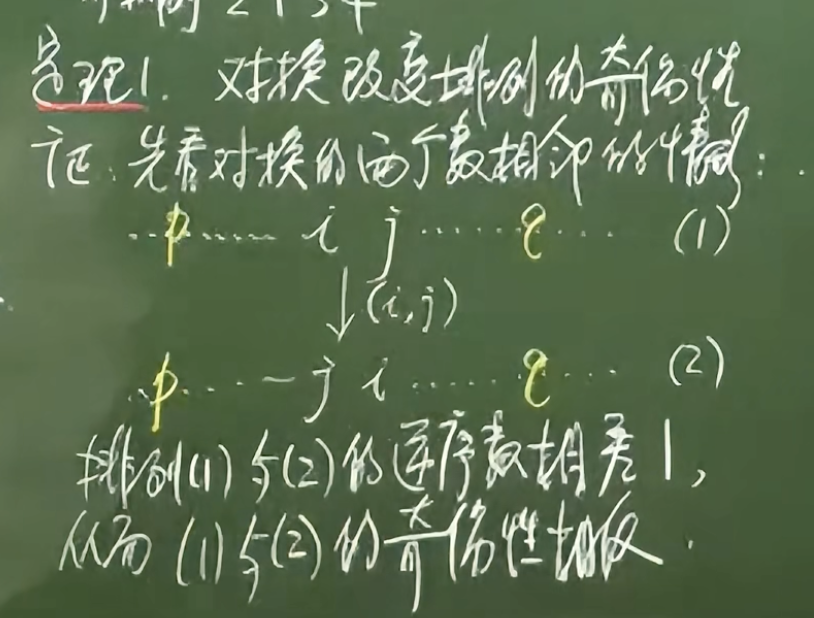 2134
定理1. 对换改变排列的奇偶性
证: 先看对换的两个数相邻的情形:
...p...... i j ...... q ... (1)
↓(i,j)
...p.... j i ...... q ... (2)
排列(1)与(2)的逆序数相差1,
从而(1)与(2)的奇偶性相反.